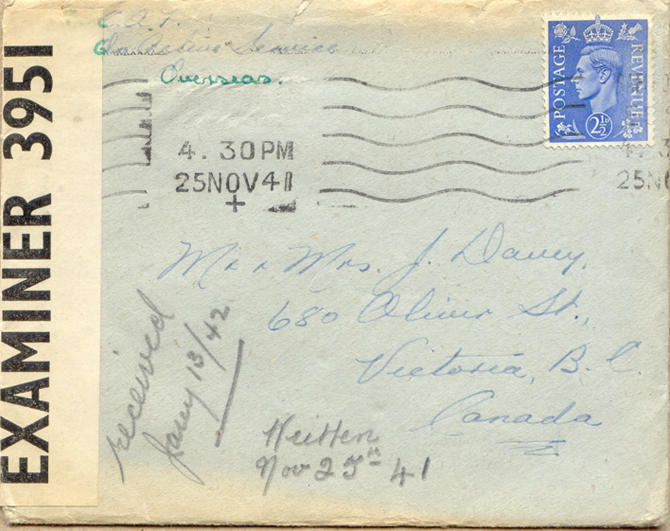 On Active Service
Overseas.
EXAMINER 3951
POSTAGE
REVENUE
2½D
4. 30PM
25NOV41
4. 3
25N
Mr & Mrs. J. Davey,
680 Oliver St.,
Victoria, B.C.
Canada
received
Jany 13/42
Written
Nov 25th 41